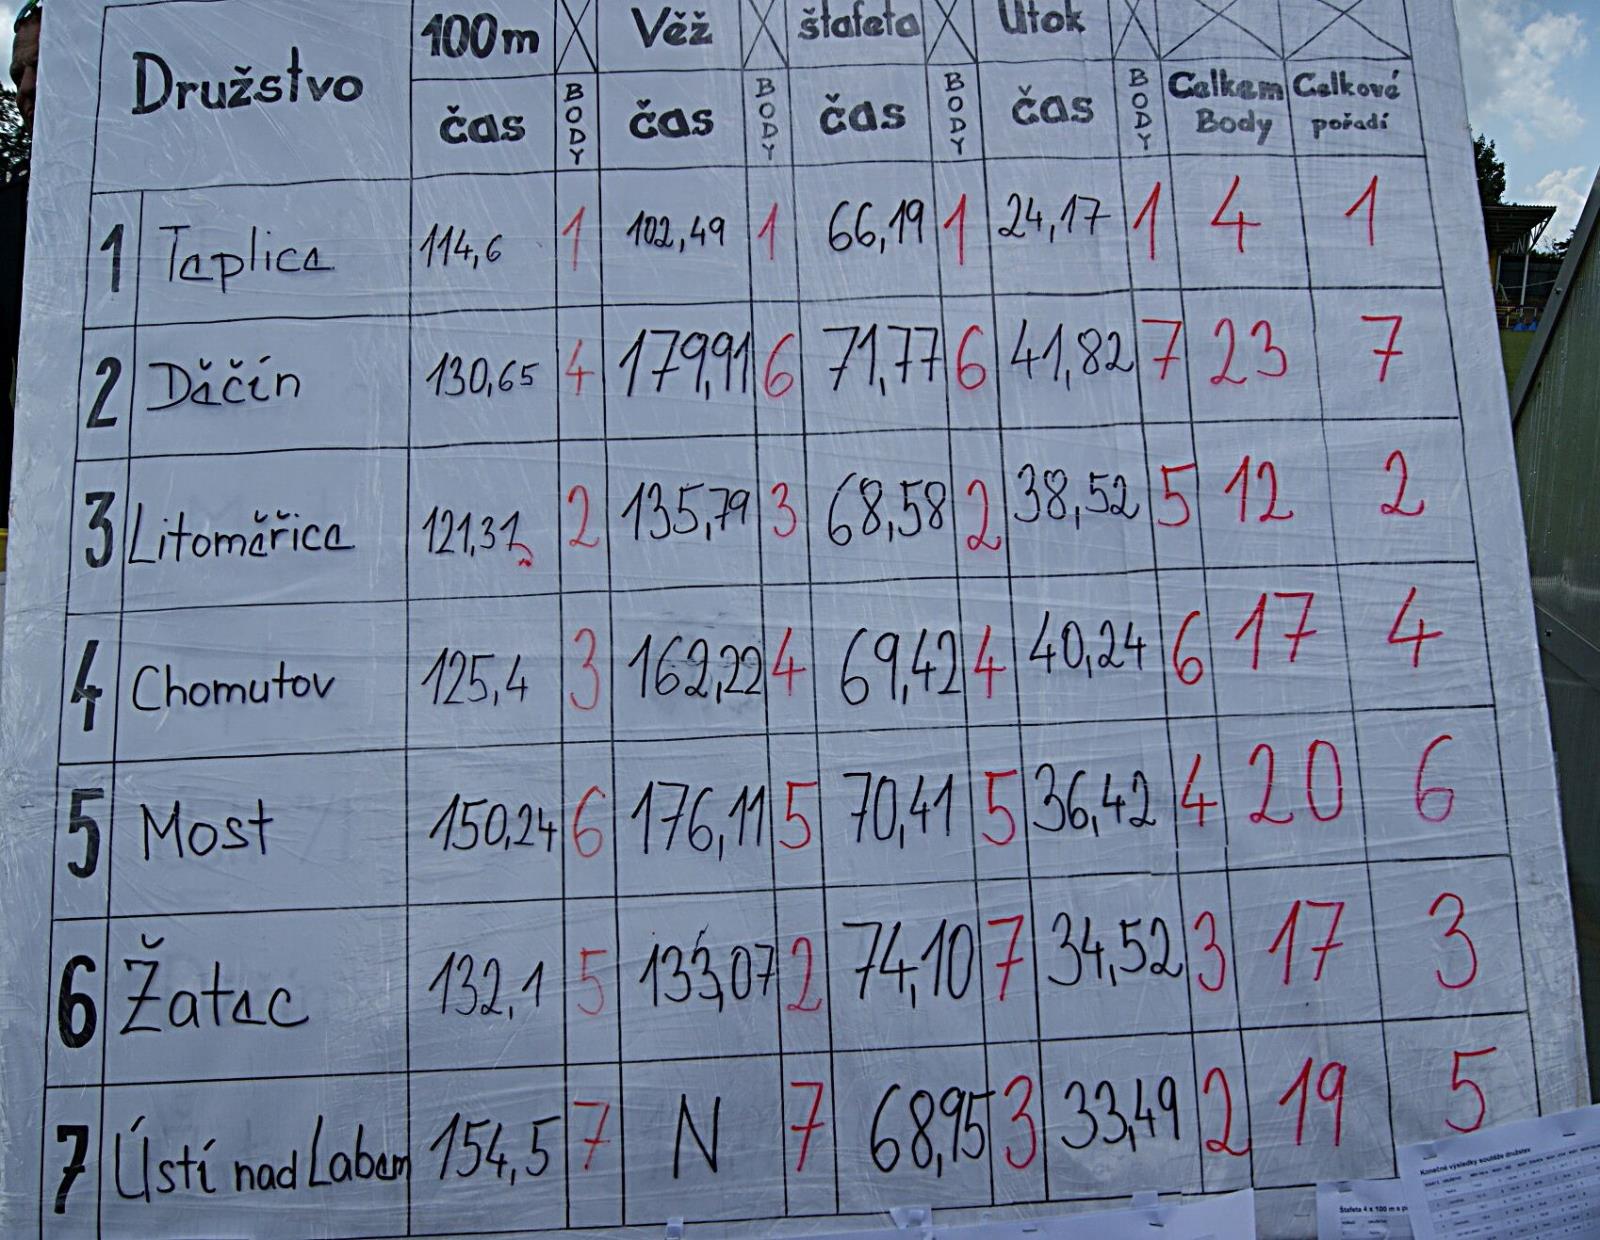 Družstvo 100m Věž štafeta Útok
čas BODY čas BODY čas BODY čas BODY Celkem Body Celkové pořadí
1 Teplice 114,6 1 102,49 1 66,19 1 24,17 1 4 1
2 Děčín 130,65 4 179,91 6 71,77 6 41,82 7 23 7
3 Litoměřice 121,31 2 135,79 3 68,58 2 38,52 5 12 2
4 Chomutov 125,4 3 162,22 4 69,42 4 40,24 6 17 4
5 Most 150,24 6 176,11 5 70,41 5 36,42 4 20 6
6 Žatec 132,1 5 133,07 2 74,10 7 34,52 3 17 3
7 Ústí nad Labem 154,5 7 N 7 68,95 3 33,49 2 19 5
Konečné výsledky soutěže družstev
Štafeta 4 x 100 m s